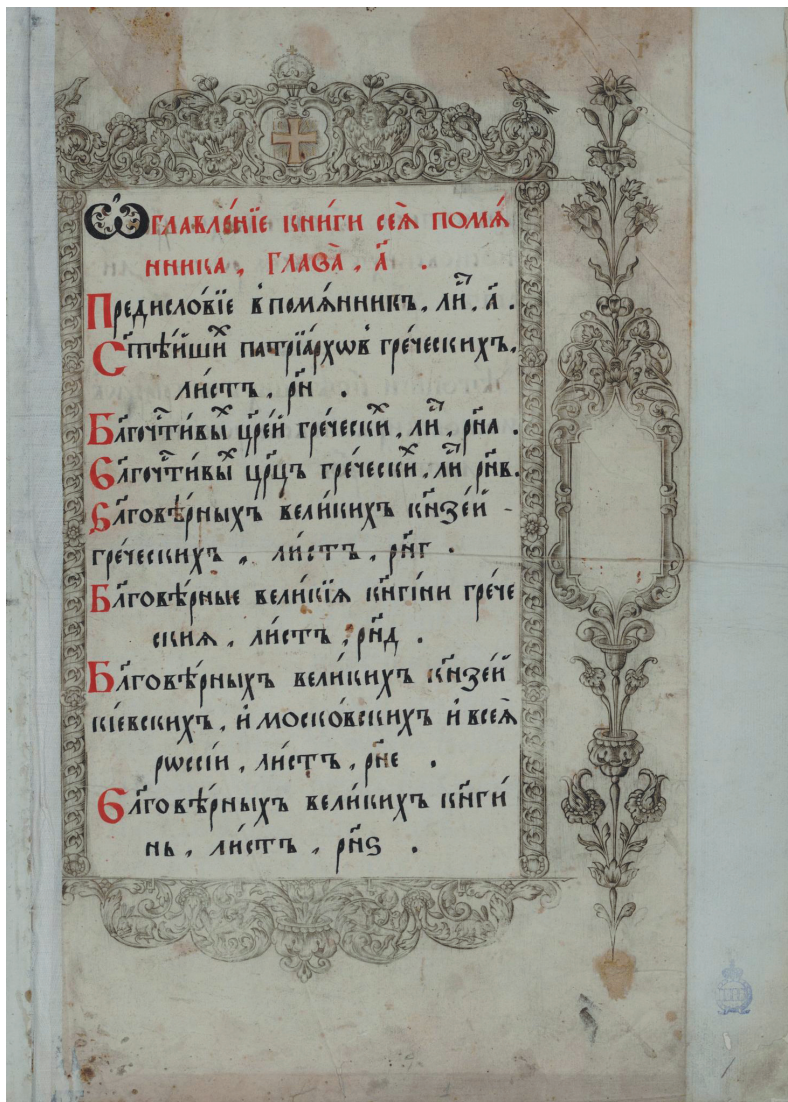 Ѡ҆главле́нїе кни́ги сеѧ̀ помѧ́
нника , Глава̀ , а҃ .
Предисло́вїе в̾ помѧ́нникъ , лиⷭ҇ , а҃ .
Ст҃ѣ́йшиⷯ патрїа́рхѡв̾ гре́ческихъ ,
ли́стъ , рн҃ .
Бл҃гочⷭ҇ти́выⷯ цр҃е́й гре́ческиⷯ , лиⷭ҇ , рн҃а .
Бл҃гочⷭ҇ти́выⷯ цр҃цъ гре́ческиⷯ , лиⷭ҇ рн҃в .
Бл҃говѣ́рныхъ вели́кихъ кн҃зе́й -
гре́ческихъ , ли́стъ , рн҃г .
Бл҃говѣ́рные вели́кїѧ кн҃ги́ни гре́че
скиѧ , ли́стъ , рн҃д .
Бл҃говѣ́рныхъ вели́кихъ кн҃зе́й
кі́евскихъ , и҆ моско́вскихъ и҆ всеѧ̀
рѡссі́и , ли́стъ , рн҃е .
Бл҃говѣ́рныхъ вели́кихъ кн҃ги́
нь , ли́стъ , рн҃ѕ .